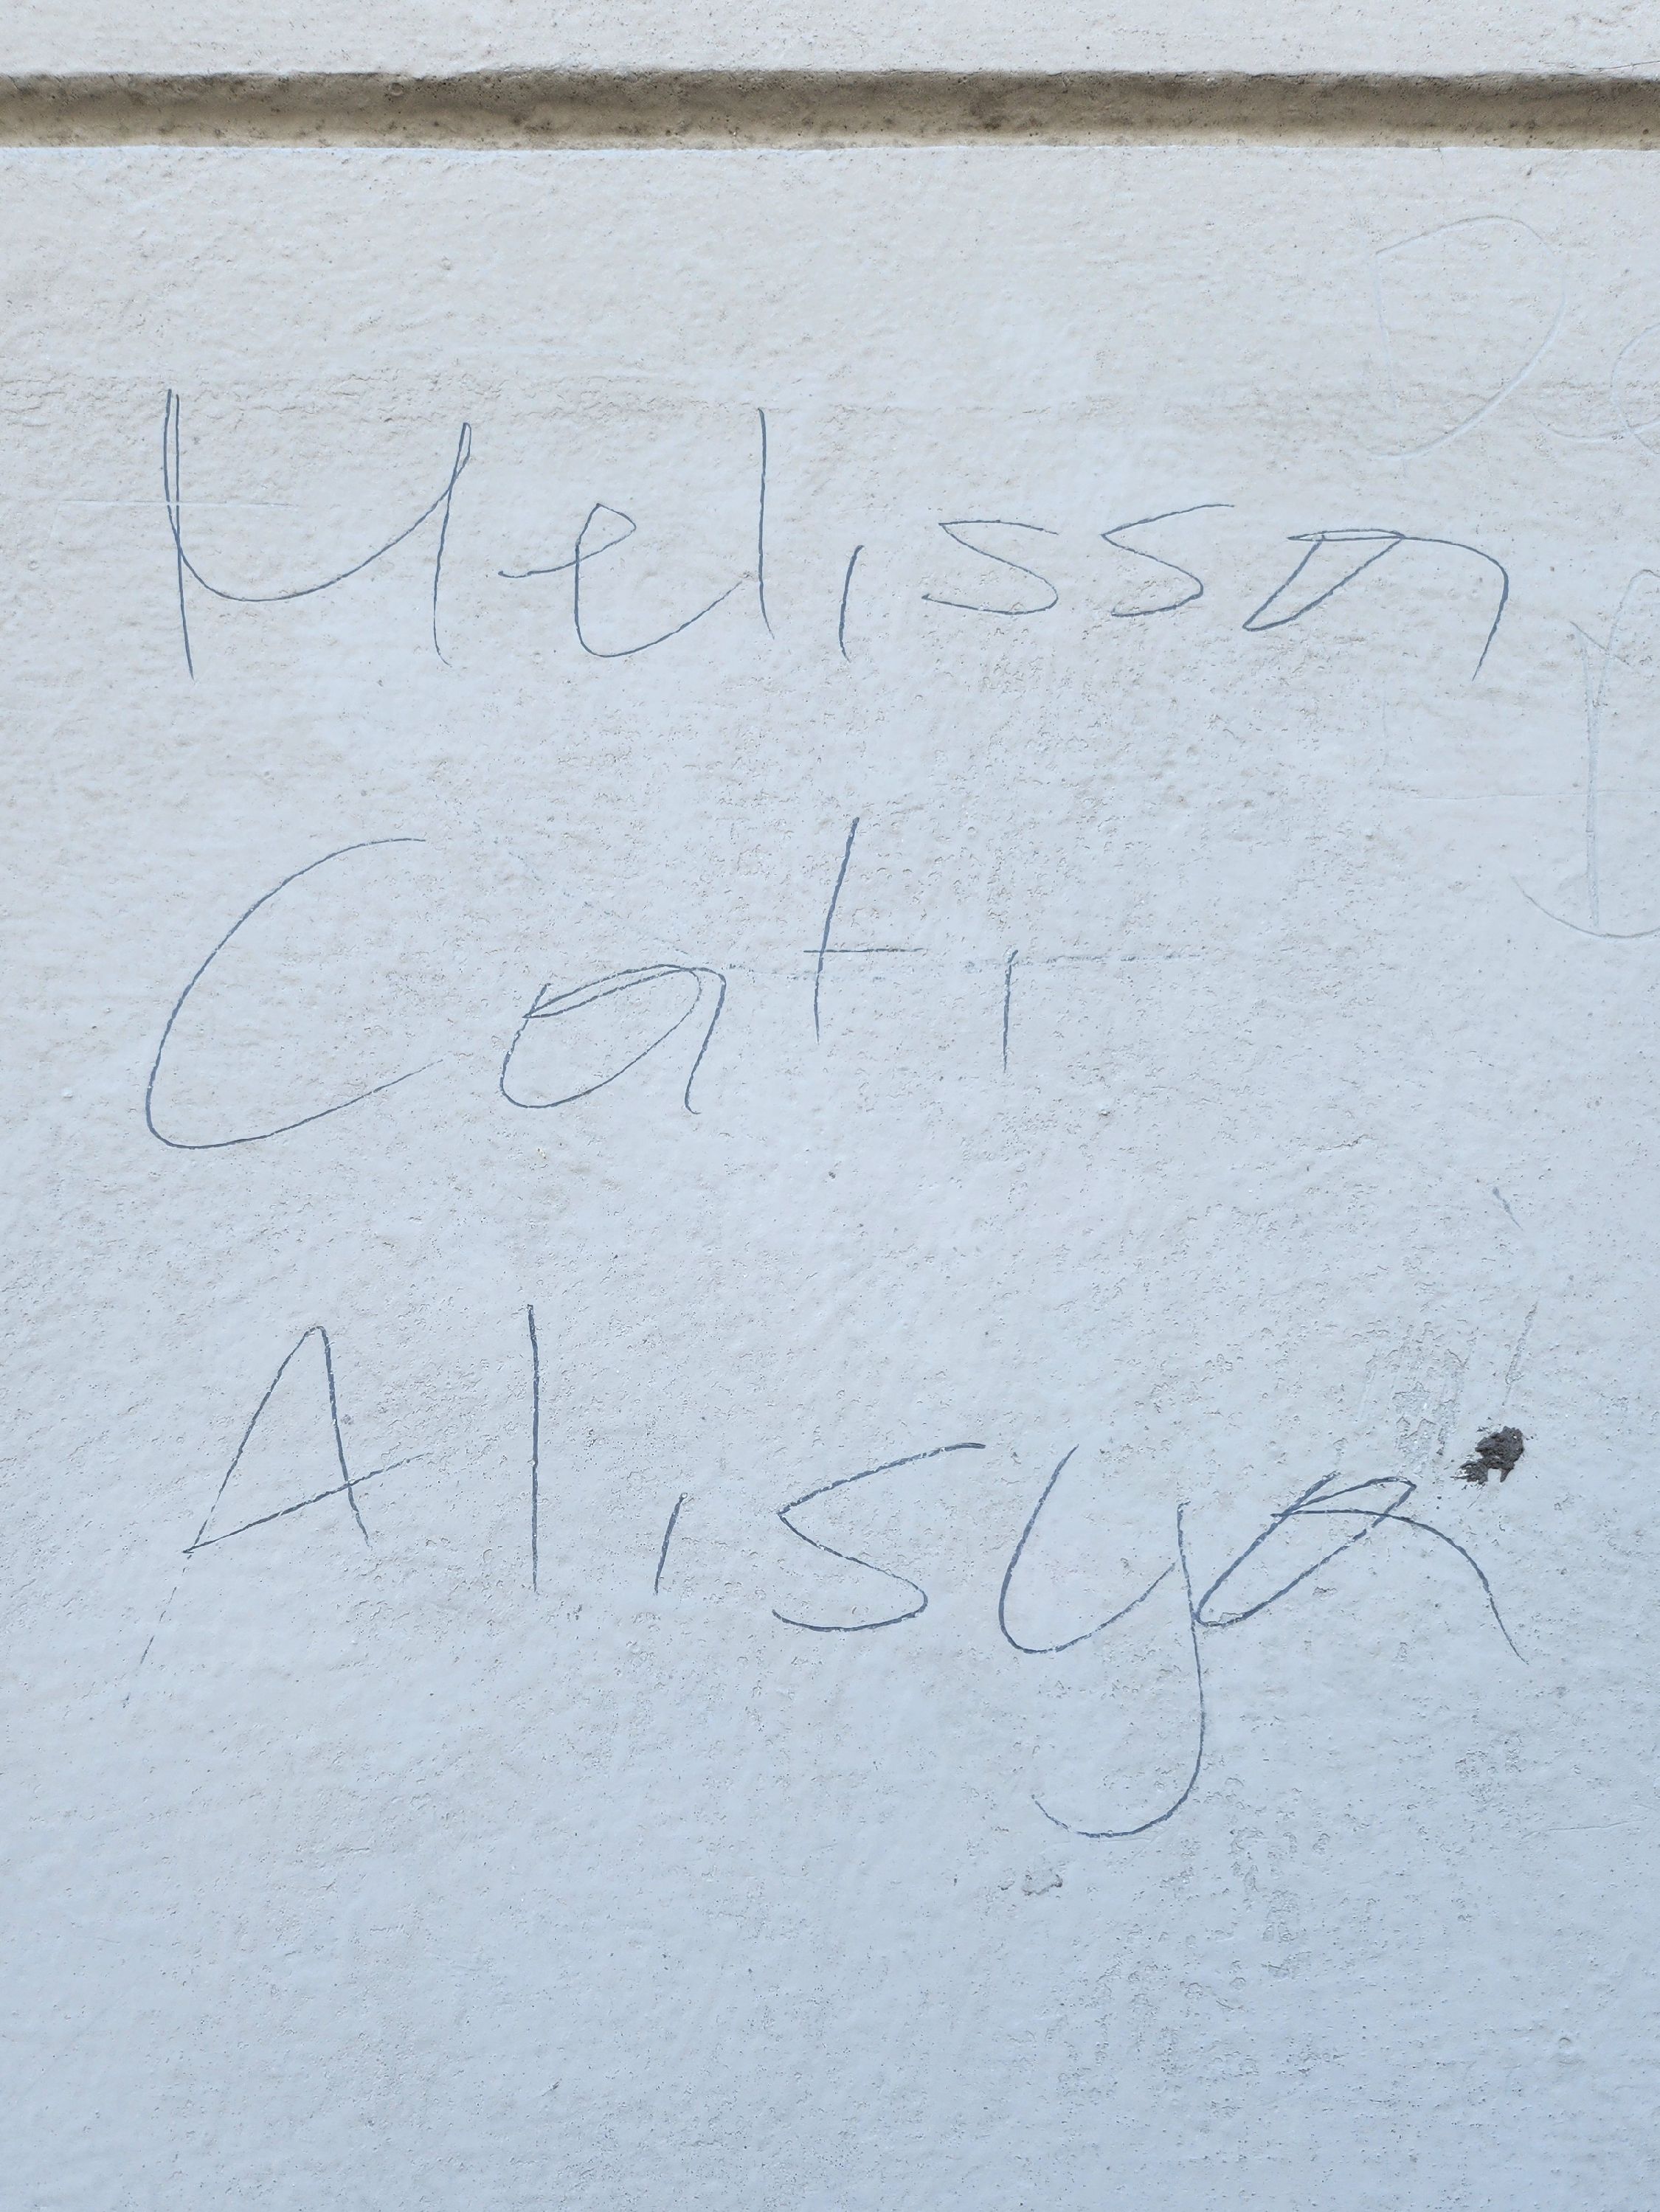 Melissa
Cati
Alisya